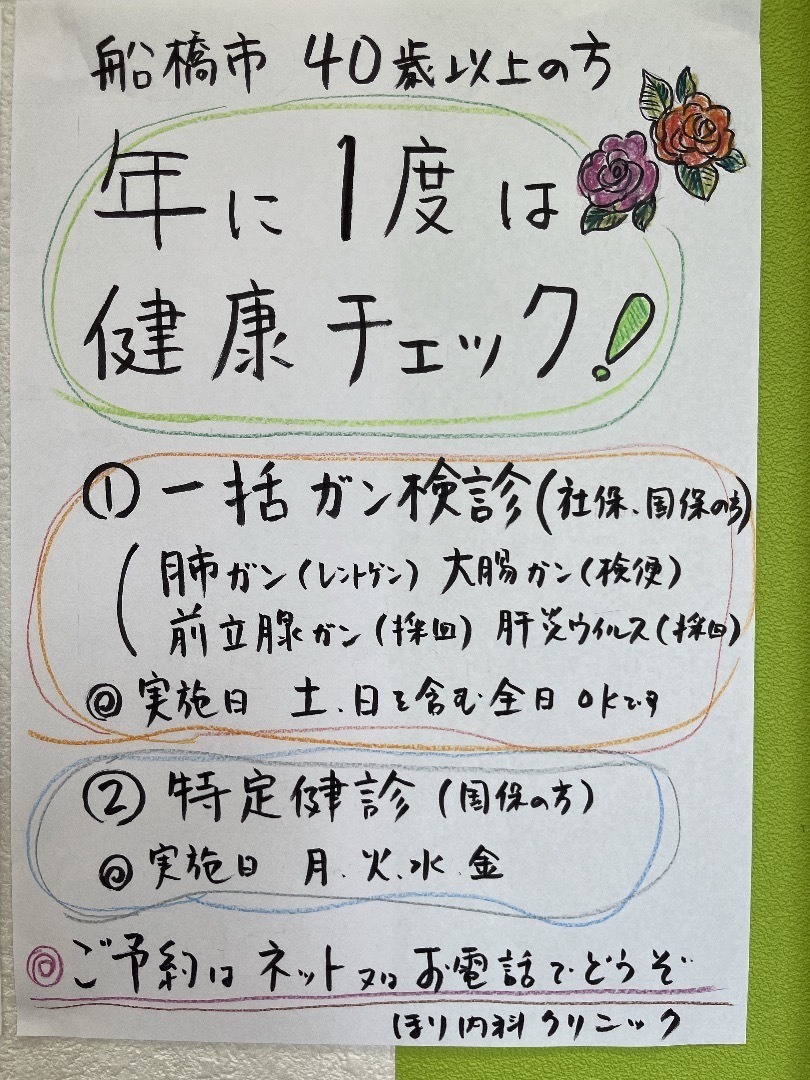 船橋市 40歳以上の方
年に1度は
健康チェック!
① 一括ガン検診(社保、国保の方)
(肺ガン(レントゲン) 大腸ガン(検便)
前立腺ガン(採血) 肝炎ウイルス(採血)
◎実施日 土、日を含む全日OKです
② 特定健診(国保の方)
◎実施日 月.火.水.金
◎ご予約はネット又はお電話でどうぞ
ほり内科クリニック